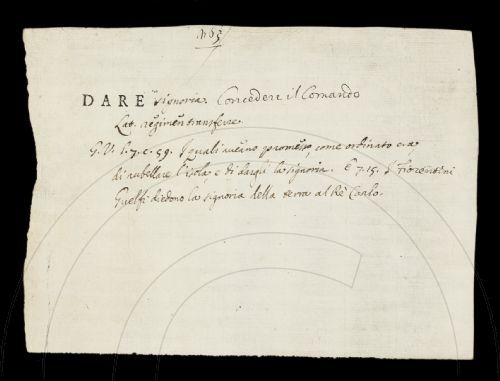 DARE signoria. Concedere il Comando
Lat. regimen transferre.
G. V. l. 7. c. 59. I quali aveano promesso, come ordinato era
di rubellare l'Isola e di dargli la signoria. E 7. 15. I Fiorentini
Guelfi diedono la signoria della terra al Rè Carlo.